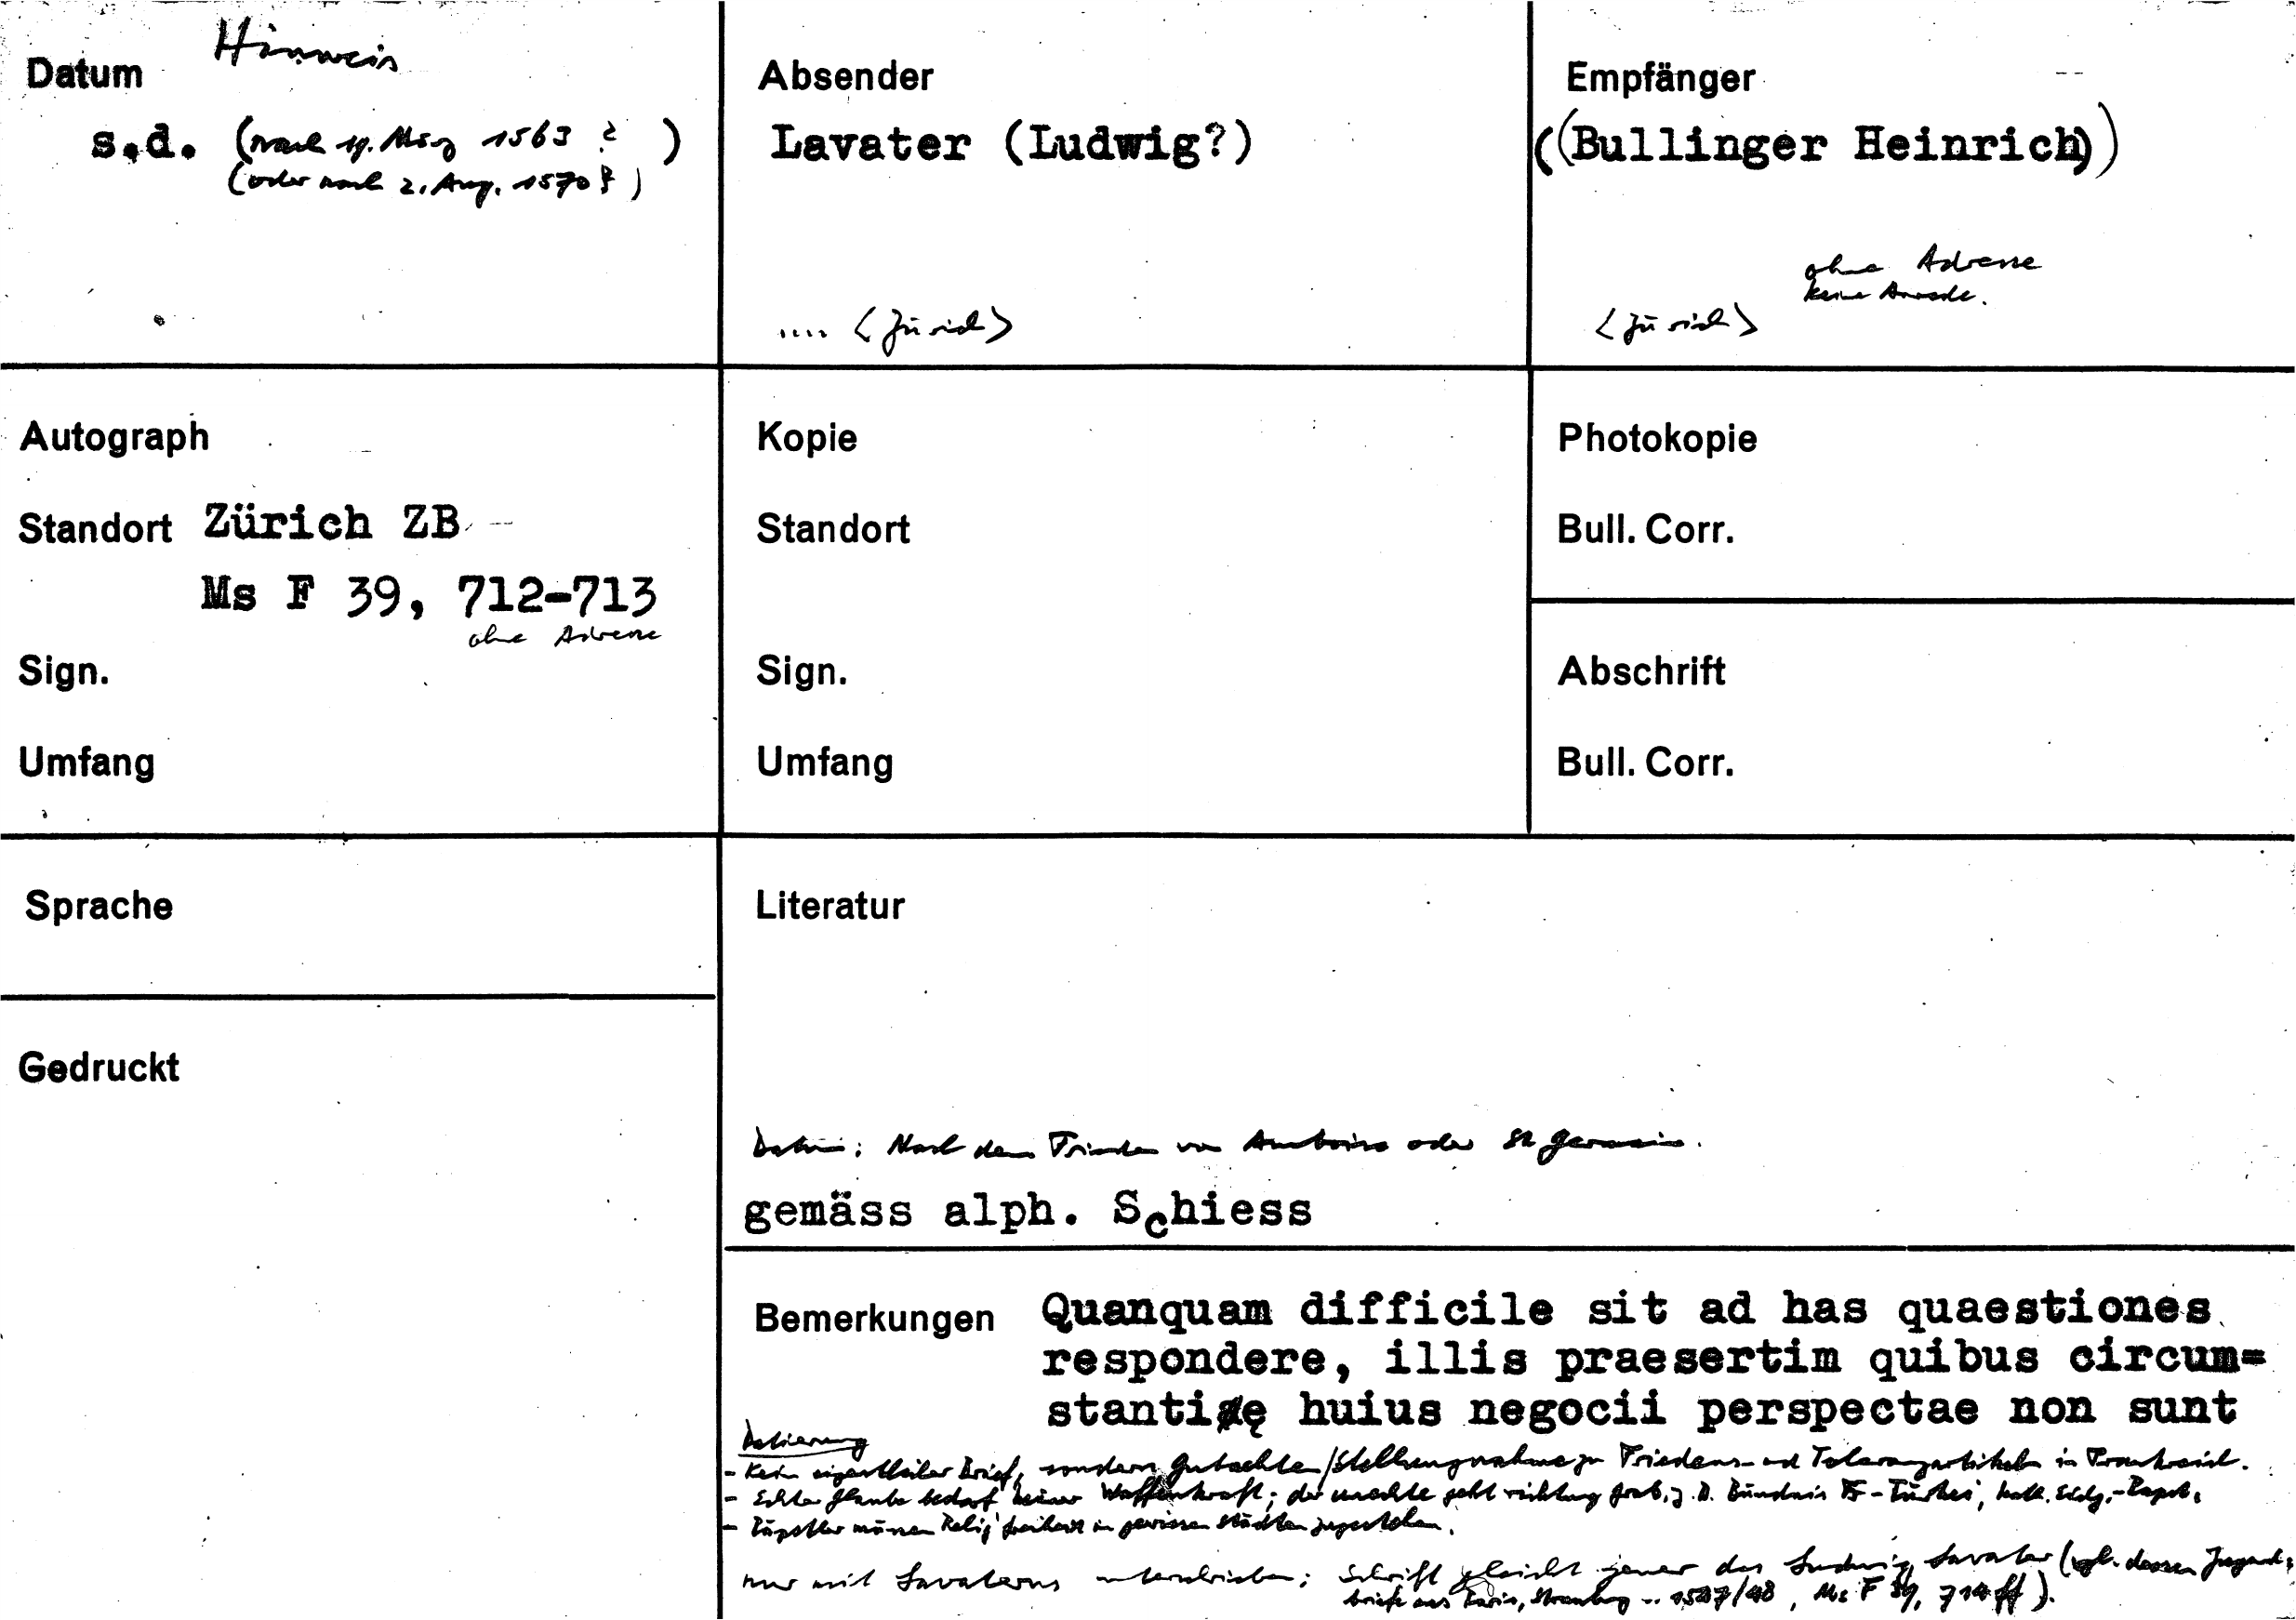 Datum Hinweis
s.d. (nach 19. März 1563 ? )
(oder nach 2. Aug. 1570 ? )
Absender
Lavater (Ludwig?)
.... <Zürich>
Empfänger
((Bullinger Heinrich))
ohne Adresse
keine Anrede.
<Zürich>
Autograph
Standort Zürich ZB
Ms F 39, 712-713
ohne Adresse
Sign.
Umfang
Kopie
Standort
Sign.
Umfang
Photokopie
Bull. Corr.
Abschrift
Bull. Corr.
Sprache
Gedruckt
Literatur
Datum: Nach dem Frieden von Amboise oder St Germain.
gemäss alph. Schiess
Bemerkungen Quanquam difficile sit ad has quaestiones
respondere, illis praesertim quibus circum=
stantię huius negocii perspectae non sunt
Datierung
- Kein eigentlicher Brief, sondern Gutachten/Stellungnahme zu Friedens- und Toleranzartikeln in Frankreich.
- Echter Glaube bedarf keiner Waffenkraft; der unechte geht richtung Grab, z.B. Bündnis Fr - Türkei, kath. Eidg.-Papst.
- Päpstler müssen Relig' freiheit in gewissen Städten zugestehen.
nur mit Lavaterus unterschrieben; Schrift gleicht jener des Ludwig Lavater (vgl. dessen Jugend-
briefe aus Paris, Strassburg .. 1547/48, Ms F 39, 714 ff).